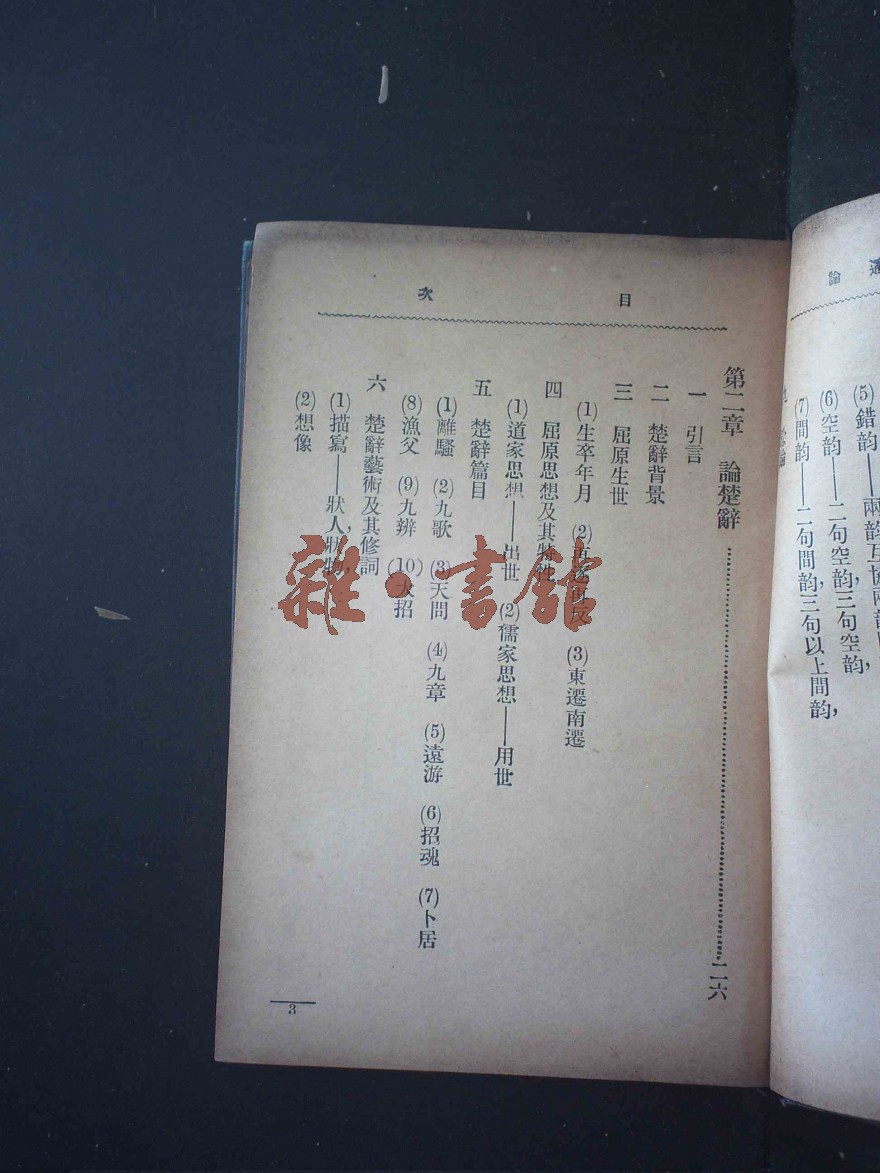 通論
(5)錯韵——兩韵互協兩韵
(6)空韵——二句空韵,三句空韵,
(7)間韵——二句間韵,三句以上間韵,
目次
第二章 論楚辭…………二六
一 引言
二 楚辭背景
三 屈原生世
(1)生卒年月 (2)再 (3)東遷南遷
四 屈原思想及其特性
(1)道家思想——出世 (2)儒家思想——用世
五 楚辭篇目
(1)離騷 (2)九歌 (3)天問 (4)九章 (5)遠游 (6)招魂 (7)卜居
(8)漁父 (9)九辨 (10)大招
六 楚辭藝術及其修詞
(1)描寫——狀人,狀物,
(2)想像
3
雜·書館